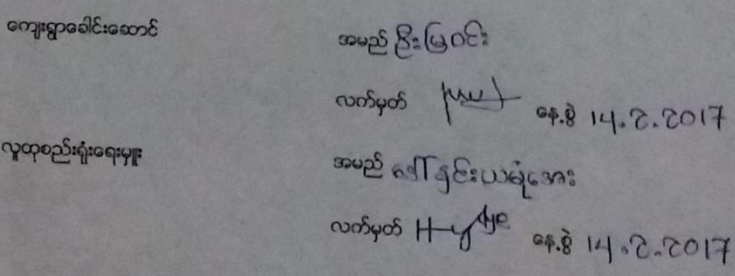 ကျေးရွာခေါင်းဆောင် အမည် ဦးမြဝင်း
လက်မှတ် နေ့စွဲ 14.2.2017
လူထုစည်းရုံးရေးမှူး အမည် ဒေါ်နှင်းယမုံအေး
လက်မှတ် နေ့စွဲ 14.2.2017